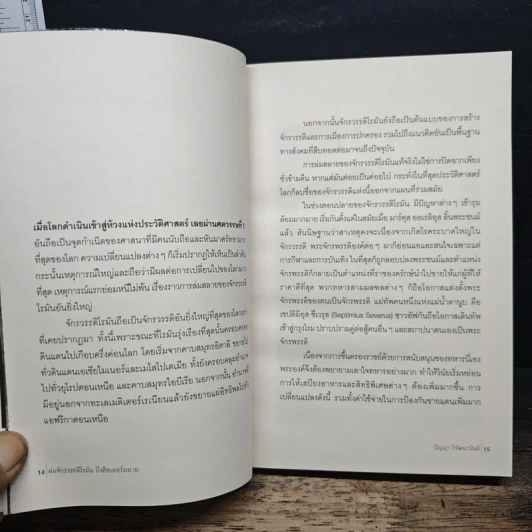 เมื่อโลกดำเนินเข้าสู่ห้วงแห่งประวัติศาสตร์ เลยผ่านศตวรรษที่ 1
อันถือเป็นจุดกำเนิดของศาสนาที่มีคนนับถือและหันมาศรัทธามาก
ที่สุดของโลก ความเปลี่ยนแปลงต่าง ๆ ก็เริ่มปรากฏให้เห็นเป็นลำดับ
กระนั้นเหตุการณ์ใหญ่และถือว่ามีผลต่อการเปลี่ยนไปของโลกมาก
ที่สุด เหตุการณ์แรกย่อมหนีไม่พ้น เรื่องราวการล่มสลายของจักรวรรดิโรมัน
อันยิ่งใหญ่
จักรวรรดิโรมันถือเป็นจักรวรรดิอันยิ่งใหญ่ที่สุดของโลกเท่า
ที่เคยปรากฏมา ทั้งนี้เพราะขณะที่โรมันรุ่งเรืองที่สุดนั้นครอบครอง
ดินแดนไปเกือบครึ่งค่อนโลก โดยเริ่มจากคาบสมุทรอิตาลี ขยายไป
ทั่วดินแดนเอเชียไมเนอร์และเมโสโปเตเมีย ทั้งยังครอบคลุมอำนาจ
ไปทั่วยุโรปตอนเหนือ และคาบสมุทรไอบีเรีย นอกจากนั้น อำนาจที่
มีอยู่นอกจากทะเลเมดิเตอร์เรเนียนแล้วยังขยายแผ่อิทธิพลไปทั่ว
แอฟริกาตอนเหนือ
14 ล่มจักรวรรดิโรมัน ถึงฮิตเลอร์มลาย
นอกจากนั้นจักรวรรดิโรมันยังถือเป็นต้นแบบของการสร้าง
จักรวรรดิและการเมืองการปกครอง รวมไปถึงแนวคิดอันเป็นพื้นฐาน
ทางสังคมที่สืบทอดต่อมาจนถึงปัจจุบัน
การล่มสลายของจักรวรรดิโรมันแท้จริงไม่ใช่การปิดฉากเพียง
ชั่วข้ามคืน หากแต่มันค่อยเป็นค่อยไป กระทั่งในที่สุดประวัติศาสตร์
โลกก็ลบชื่อของจักรวรรดิแห่งนี้ออกจากแผนที่ร่วมสมัย
ในช่วงตอนปลายของจักรวรรดิโรมัน มีปัญหาต่างๆ เข้ารุม
ล้อมมากมาย เริ่มกันตั้งแต่ในสมัยเมื่อ มาร์คุส ออเรลิอุส สิ้นพระชนม์
แล้ว สันนิษฐานว่าสาเหตุคงจะเนื่องจากเกิดโรคระบาดใหญ่ใน
จักรวรรดิ พระจักรพรรดิองค์ต่อๆ มาก็อ่อนแอและสนใจเฉพาะแต่
การกีฬาและการบันเทิง ในที่สุดก็ถูกลอบปลงพระชนม์และตำแหน่ง
จักรพรรดิก็กลายเป็นตำแหน่งที่ราชองครักษ์นำไปขายให้แก่ผู้ที่ให้
ราคาดีที่สุด พวกทหารตามมณฑลต่างๆ ก็ถือโอกาสแต่งตั้งพระ
จักรพรรดิของตนเป็นจักรพรรดิ แม่ทัพคนหนึ่งแห่งแม่น้ำดานูบ คือ
เซปติมิอุส ซีเวรุส (Septimius Severus) ชาวอัฟริกันถือโอกาสเดินทัพ
เข้าสู่กรุงโรม ปราบปรามคู่ต่อสู้คนอื่น ๆ และสถาปนาตนเองเป็นพระ
จักรพรรดิ
เนื่องจากการขึ้นครองราชย์ด้วยการสนับสนุนของทหารนี่เอง
พระองค์จึงต้องพยายามเอาใจทหารอย่างมาก ทำให้วินัยเริ่มหย่อน
การให้เสบียงอาหารและสิทธิพิเศษต่าง ๆ ต้องเพิ่มมากขึ้น การ
เปลี่ยนแปลงดังนี้ รวมทั้งค่าใช้จ่ายในการป้องกันชายแดนเพิ่มมาก
ปัญญา วิวัฒนานันท์ 15